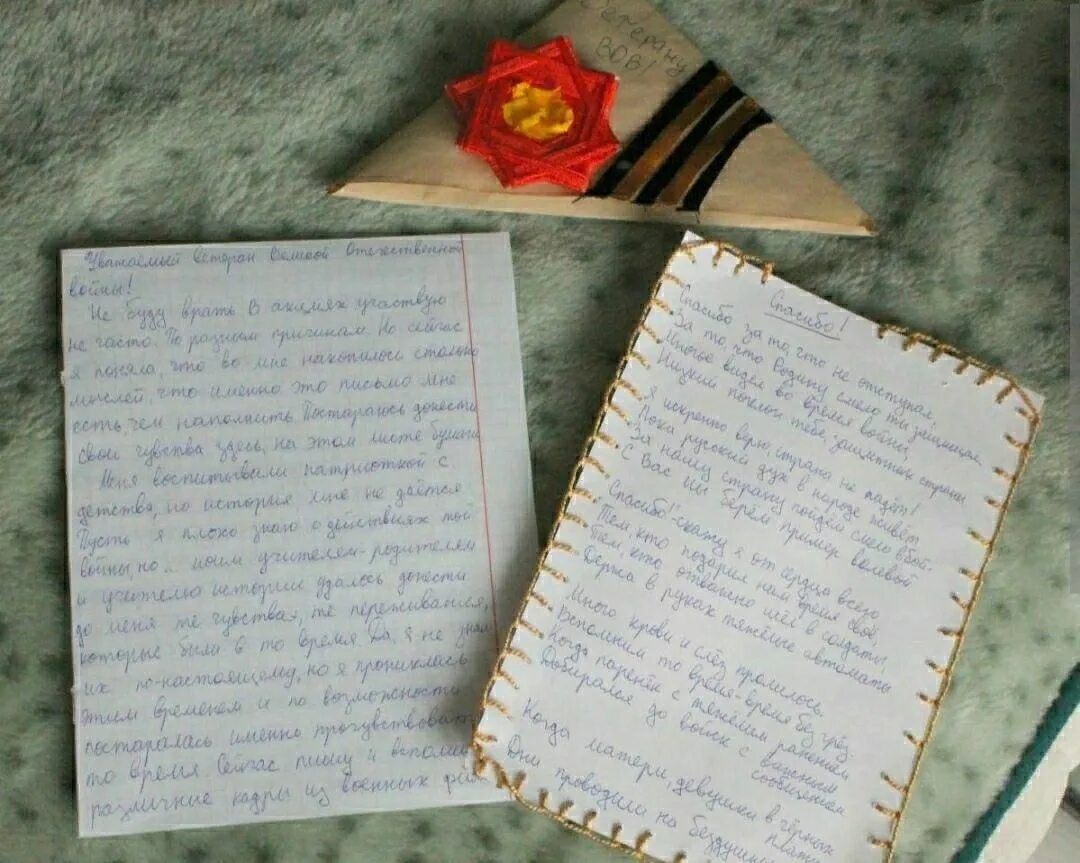 Ветерану
ВОВ!
Уважаемый ветеран Великой Отечественной
войны!
Не буду врать. В акциях участвую
не часто. По разным причинам. Но сейчас
я поняла, что во мне накопилось столько
мыслей, что именно это письмо мне
есть чем наполнить. Постараюсь донести
свои чувства здесь, на этом листе бумаги.
Меня воспитывали патриоткой с
детства, но история мне не даётся.
Пусть я плохо знаю о действиях той
войны, но моим учителям-родителям
и учителю истории удалось донести
до меня те чувства, те переживания,
которые были в то время. Да, я не знаю
их по-настоящему, но я прониклась
этим временем и по возможности
постаралась именно прочувствовать
то время. Сейчас пишу и вспоминаю
различные кадры из военных
Спасибо!
Спасибо за то, что не отступал,
За то, что Родину смело ты защищал
Многое видел во время войны,
Низкий поклон тебе, защитник страны
Я искренно верю, страна не падёт!
Пока русский дух в народе живёт
За нашу страну пойдём смело в бой-
С Вас мы берём пример волевой
"Спасибо!"-скажу я от сердца всего
Тем, кто подарил нам время своё
Тем, кто отважно шёл в солдаты,
Держа в руках тяжёлые автоматы
Много крови и слёз пролилось.
Вспомним то время-время без грёз
Когда паренёк с тяжёлым ранением
Добирался до войск с важным
сообщением
Когда матери, девушки в чёрных
Дни проводили на